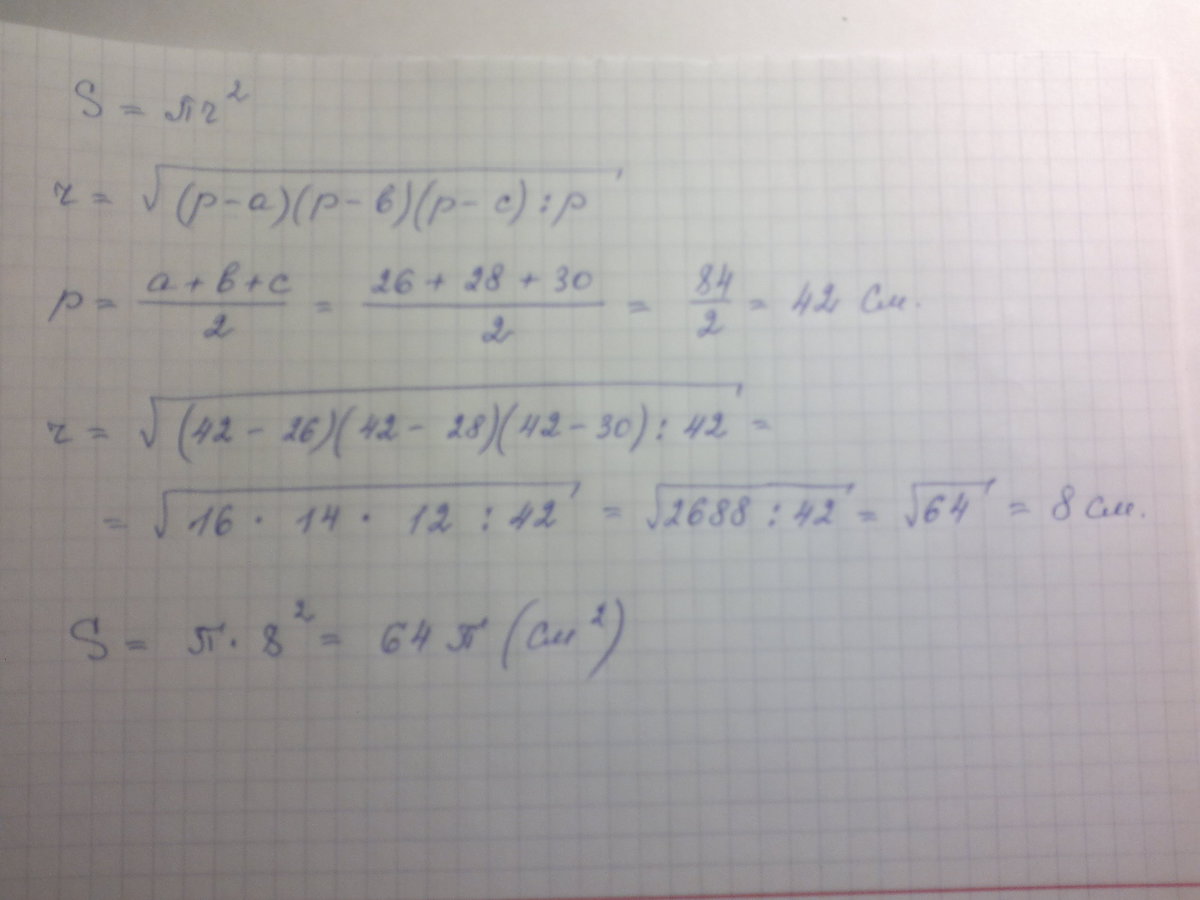 S = πr²
r = √((p-a)(p-в)(p-c) : p)
p = (a+в+c)/2 = (26 + 28 + 30)/2 = 84/2 = 42 см.
r = √((42 - 26)(42 - 28)(42 - 30) : 42) =
= √(16 · 14 · 12 : 42) = √(2688 : 42) = √64 = 8 см.
S = π · 8² = 64 π (см²)